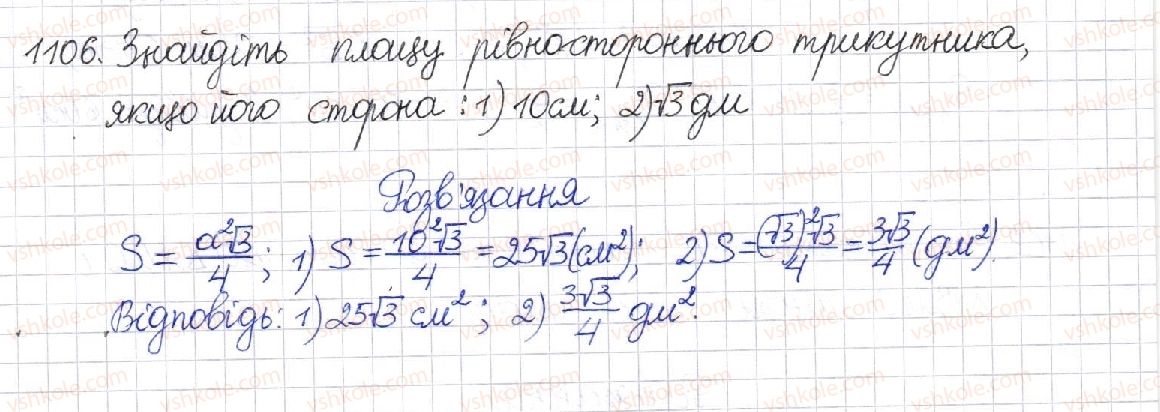 1106. Знайдіть площу рівностороннього трикутника,
якщо його сторона : 1) 10см; 2) √3 дм
Розв'язання
S = a²√3/4 ; 1) S = 10²√3/4 = 25√3 (см²); 2) S = (√3)²√3/4 = 3√3/4 (дм²).
Відповідь: 1) 25√3 см²; 2) 3√3/4 дм².